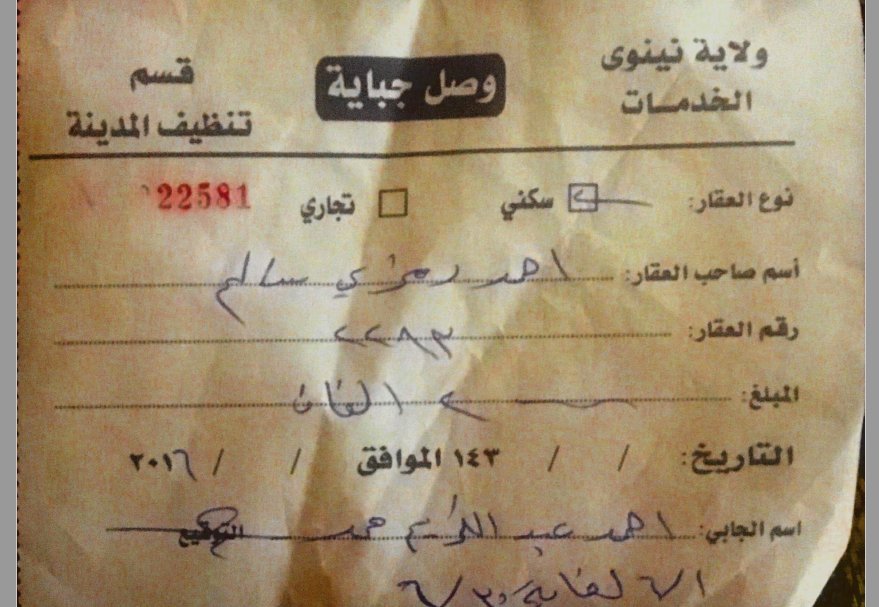 ولاية نينوى وصل جباية قسم
الخدمات تنظيف المدينة
نوع العقار: سكني تجاري 22581
أسم صاحب العقار: احمد رمزي سالم
رقم العقار: ٢٢٨٣
المبلغ: ٢ الفان
التاريخ: / / ١٤٣ الموافق / / ٢٠١٦
اسم الجابي: احمد عبد حمد التوقيع